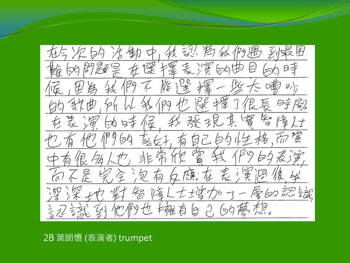 在今次的活動中,我認為我們遇到最困
難的問題是在選擇表演的曲目的時
候,因為我們不能選擇一些太嘈吵
的歌曲,所以我們也選擇了很長時間
在表演的時候,我發現其實智障人士
也有他們的喜好,有自己的性格,而當
中有很多人也非常欣賞我們的表演,
而不是完全沒有反應,在表演過後,我
深深地對智障人士增加了一層的認識
認識到他們也擁有自己的夢想。
2B 葉朗懷 (表演者) trumpet